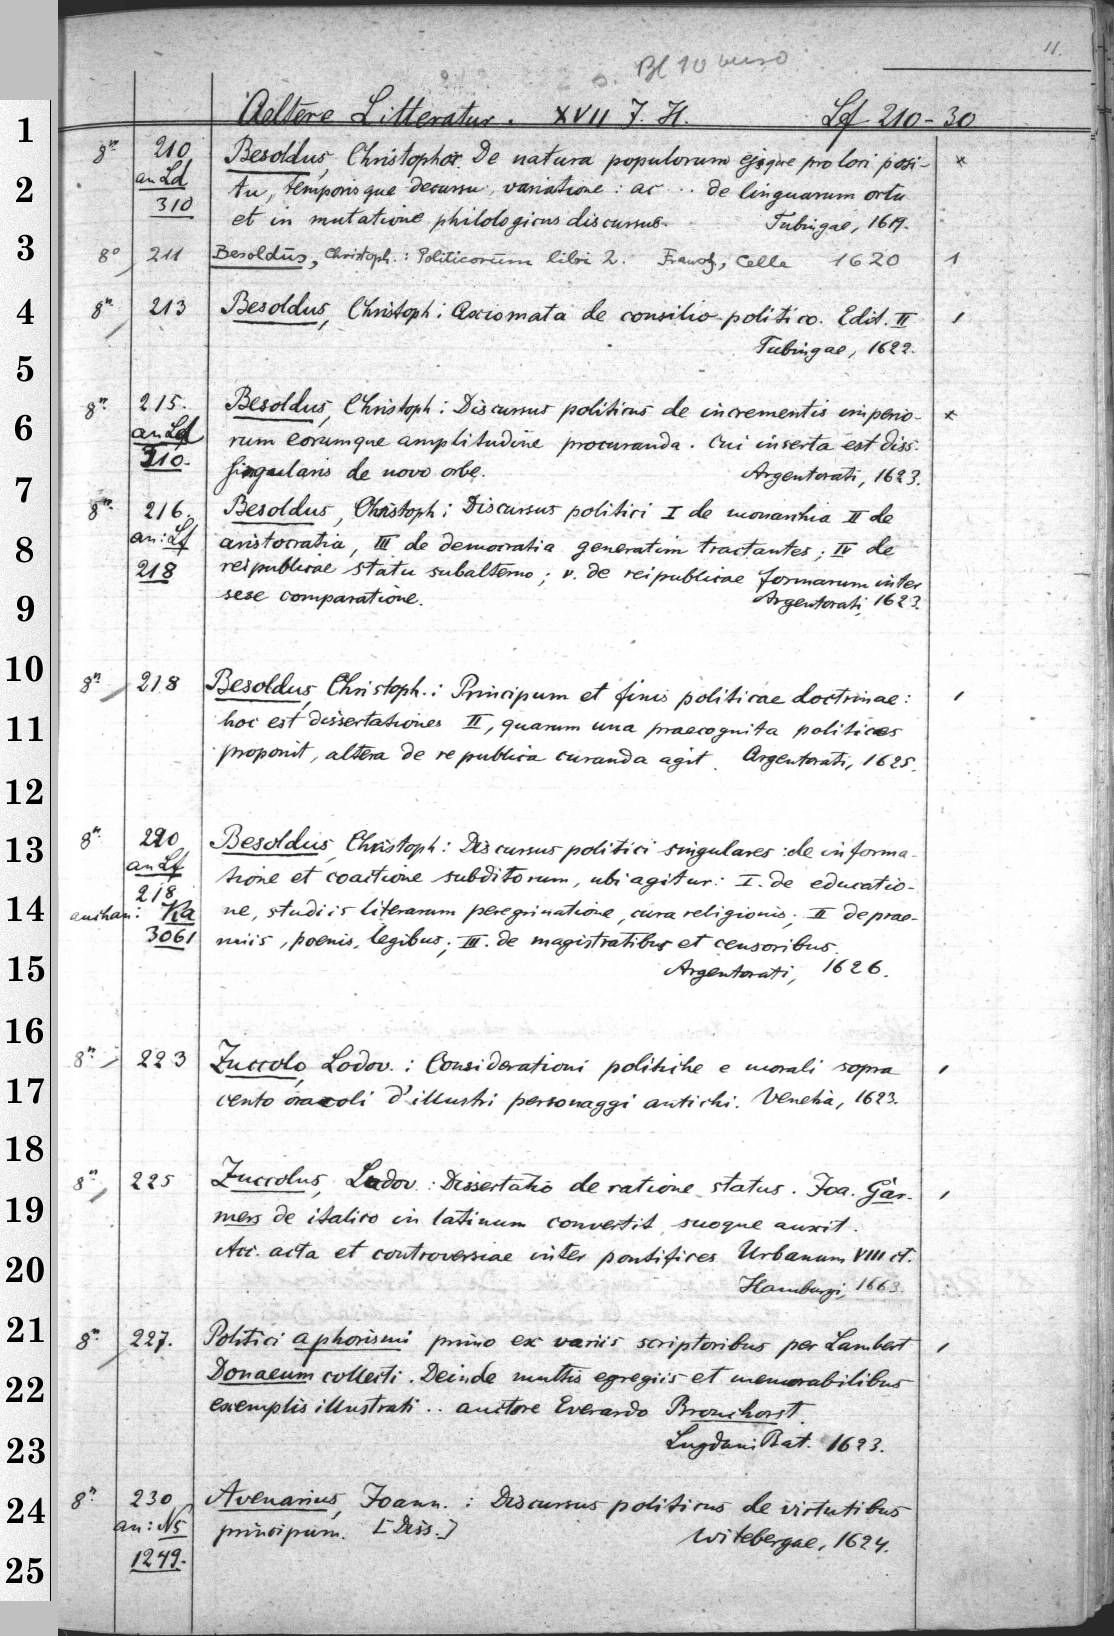 11.
Bl 10 verso
Aeltere Litteratur. XVII J. H. Lf 210-30
1
8° 210 Besoldus, Christophor. De natura populorum ejusque pro lori posi- x
2
an Ld tu, temporisque decursu, variatione: ac ... de linguarum ortu
310 et in mutatione philologicus discursus. Tubingae, 1619.
3
8° 211 Besoldus, Christoph.: Politicorum libri 2. Francf, Cella 1620 1
4
8° 213 Besoldus, Christoph: Axiomata de consilio politico. Edit. II
Tubingae, 1622.
5
8° 215. Besoldus, Christoph: Discursus politicus de incrementis imperio- x
6
an Lf rum eorumque amplitudine procuranda. Cui inserta est diss.
310. singularis de novo orbe. Argentorati, 1623.
7
8° 216. Besoldus, Christoph: Discursus politici I de monarchia II de
8
an: Lf aristocratia, III de democratia generatim tractantes; IV de
218 reipublicae statu subalterno; V. de reipublicae formarum inter
9
sese comparatione. Argentorati, 1623.
10
8° 218 Besoldus, Christoph.: Principum et finis politicae doctrinae:
11
hoc est dissertationes II, quarum una praecognita politices
proponit, altera de republica curanda agit. Argentorati, 1625.
12
13
8° 220 Besoldus, Christoph: Discursus politici singulares: de informa-
an Lf tione et coactione subditorum, ubi agitur: I. de educatio-
218
14
auch an: Ka ne, studiis literarum peregrinatione, cura religionis; II de prae-
3061 miis, poenis, legibus; III. de magistratibus et censoribus.
15
Argentorati, 1626.
16
8° 223 Zuccolo, Lodov.: Considerationi politiche e morali sopra
17
cento oracoli d'illustri personaggi antichi. Venetia, 1623.
18
8° 225 Zuccolus, Ludov: Dissertatio de ratione status. Joa. Gar-
19
mers de italico in latinum convertit, suoque auxit.
20
Acc. acta et controversiae inter pontifices Urbanum VIII et.
Hamburgi, 1663.
21
8° 227. Politici aphorismi primo ex variis scriptoribus per Lambert
22
Donaeum collecti. Deinde multis egregiis et memorabilibus
exemplis illustrati .. auctore Everardo Bronchorst.
23
Lugduni Bat. 1623.
24
8° 230 Avenarius, Joann.: Discursus politicus de virtutibus
an: Ns principum. [Diss.] Witebergae, 1624.
25
1249.